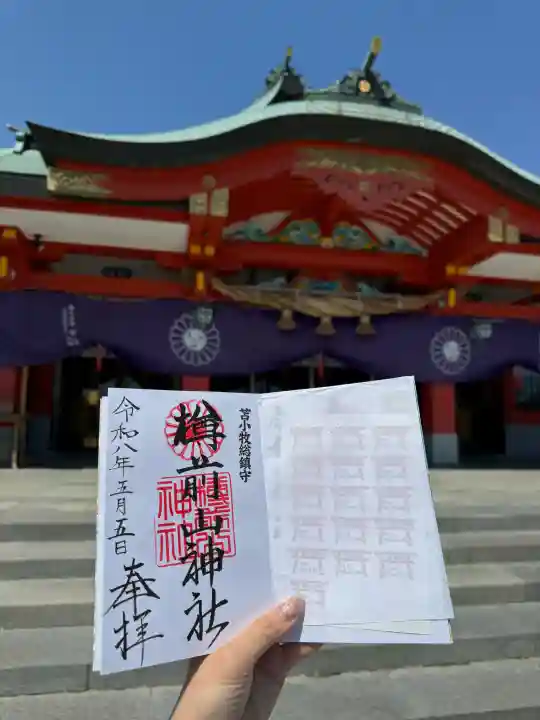 苫小牧総鎮守
樽前山神社
奉拝
令和八年五月五日